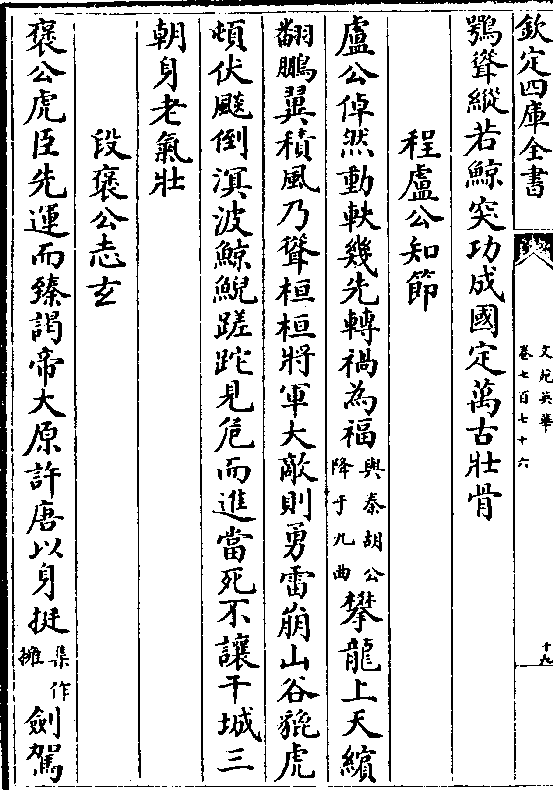 欽定四庫全書
文苑英華
卷七百七十六
十九
鶚聳縱若鯨突功成國定萬古壯骨
程盧公知節
盧公倬然動軼幾先轉禍為福與秦胡公降于九曲攀龍上天繽
翻鵬翼積風乃聳桓桓將軍大敵則勇雷崩山谷貔虎
頓伏颷倒溟波鯨鯢蹉跎見危而進當死不讓干城三
朝身老氣壯
段褒公志玄
褒公虎臣先運而臻謁帝大原許唐以身挺集作擁劍駕